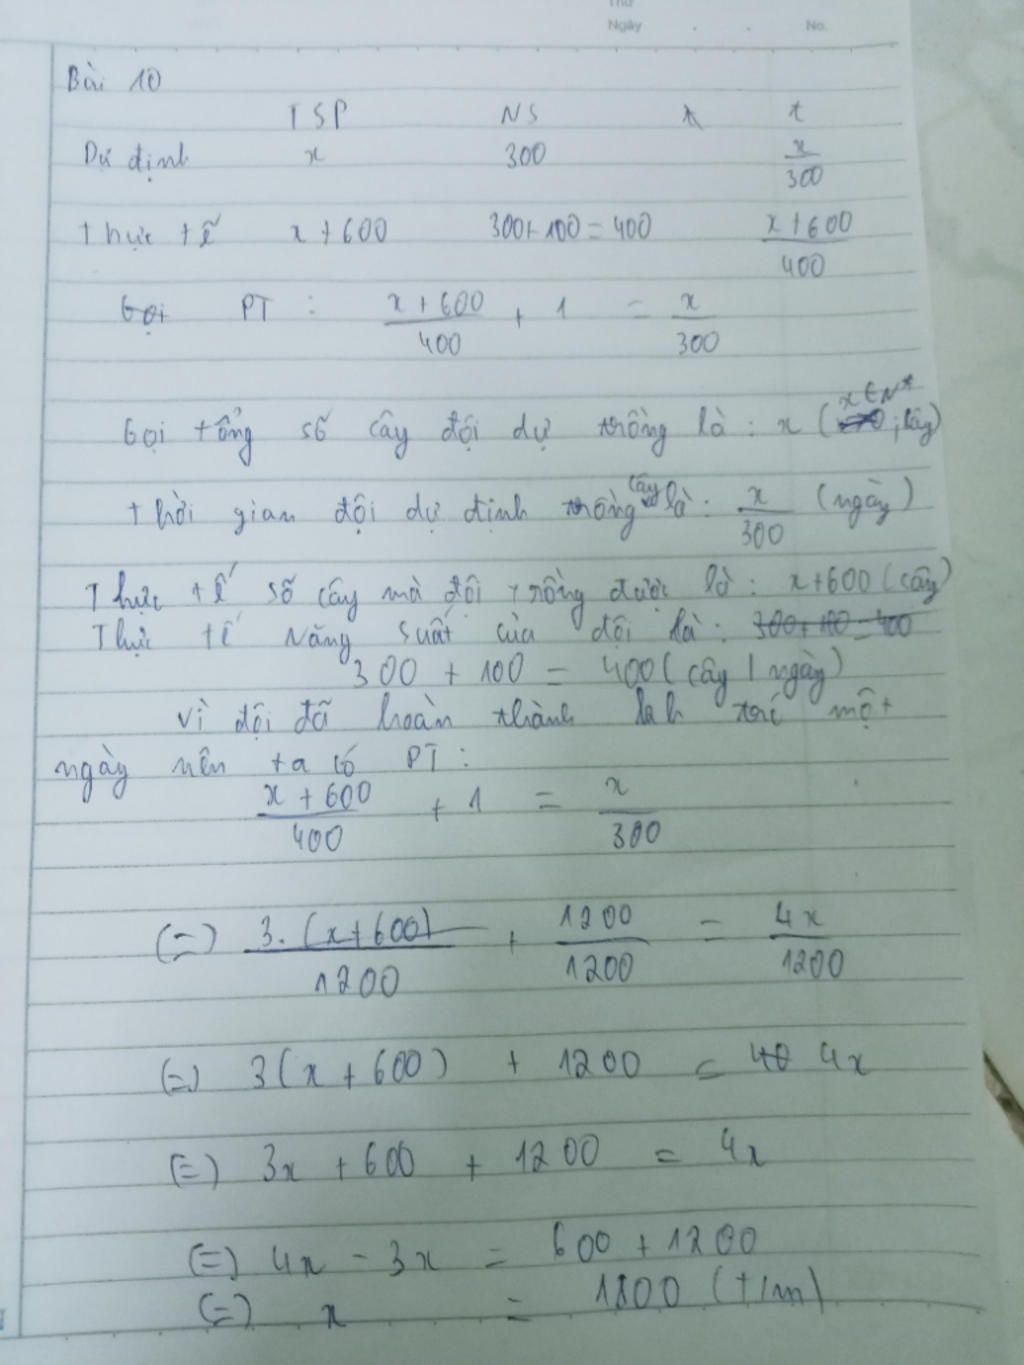 Thứ
Ngày . . No.
Bài 10
TSP NS t
Dự định x 300 x/300
Thực tế x + 600 300 + 100 = 400 x + 600/400
Gọi PT : x + 600/400 + 1 = x/300
Gọi tổng số cây đội dự trồng là : x (x ∈ N* ; cây)
Thời gian đội dự định trồng cây là : x/300 (ngày)
Thực tế số cây mà đội trồng được là : x + 600 (cây)
Thực tế Năng suất của đội là : 300 + 100 = 400
300 + 100 = 400 (cây / ngày)
Vì đội đã hoàn thành một
ngày nên ta có PT :
x + 600/400 + 1 = x/300
(=) 3. (x + 600)/1200 + 1200/1200 = 4x/1200
(=) 3(x + 600) + 1200 = 40 4x
(=) 3x + 600 + 1200 = 4x
(=) 4x - 3x = 600 + 1200
(=) x = 1800 (t/m)